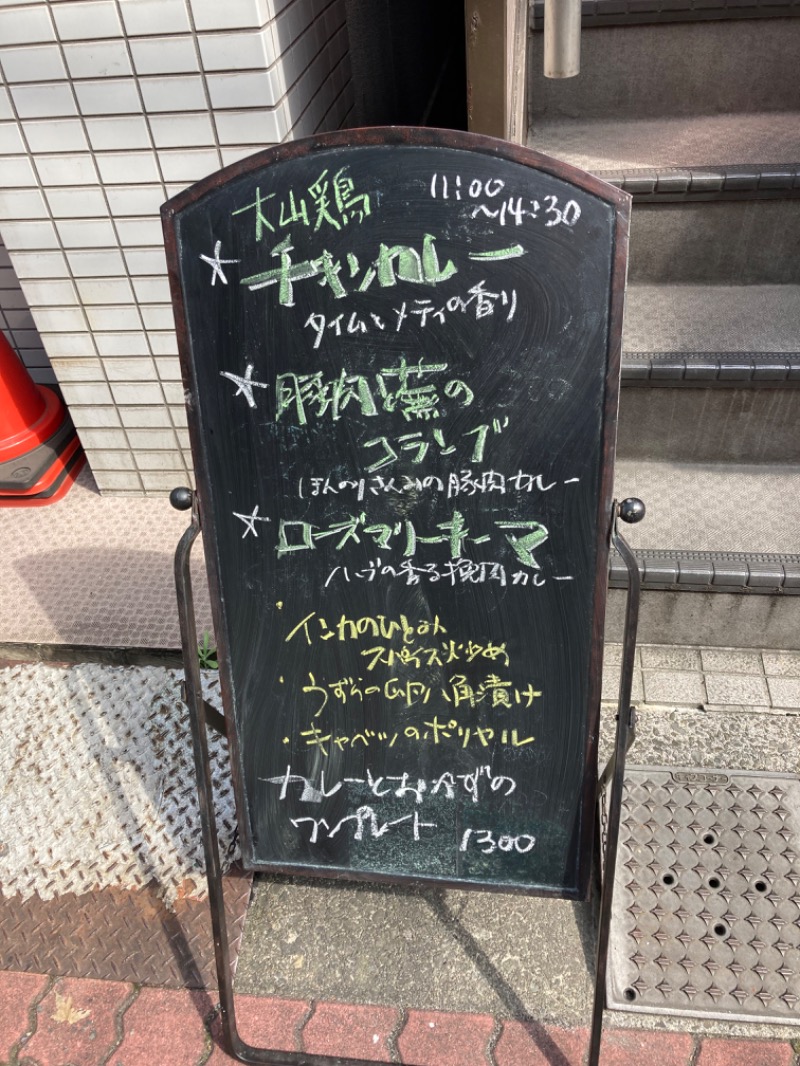 大山鶏
11:00
〜14:30
☆チキンカレー
タイムとメティの香り
☆豚肉と蕪の
コランブ
ほんのりさんみの豚肉カレー
☆ローズマリーキーマ
ハーブの香る挽肉カレー
・インカのひとみ
スパイス炒め
・うずらの卵八角漬け
・キャベツのポリヤル
カレーとおかずの
ワンプレート 1300